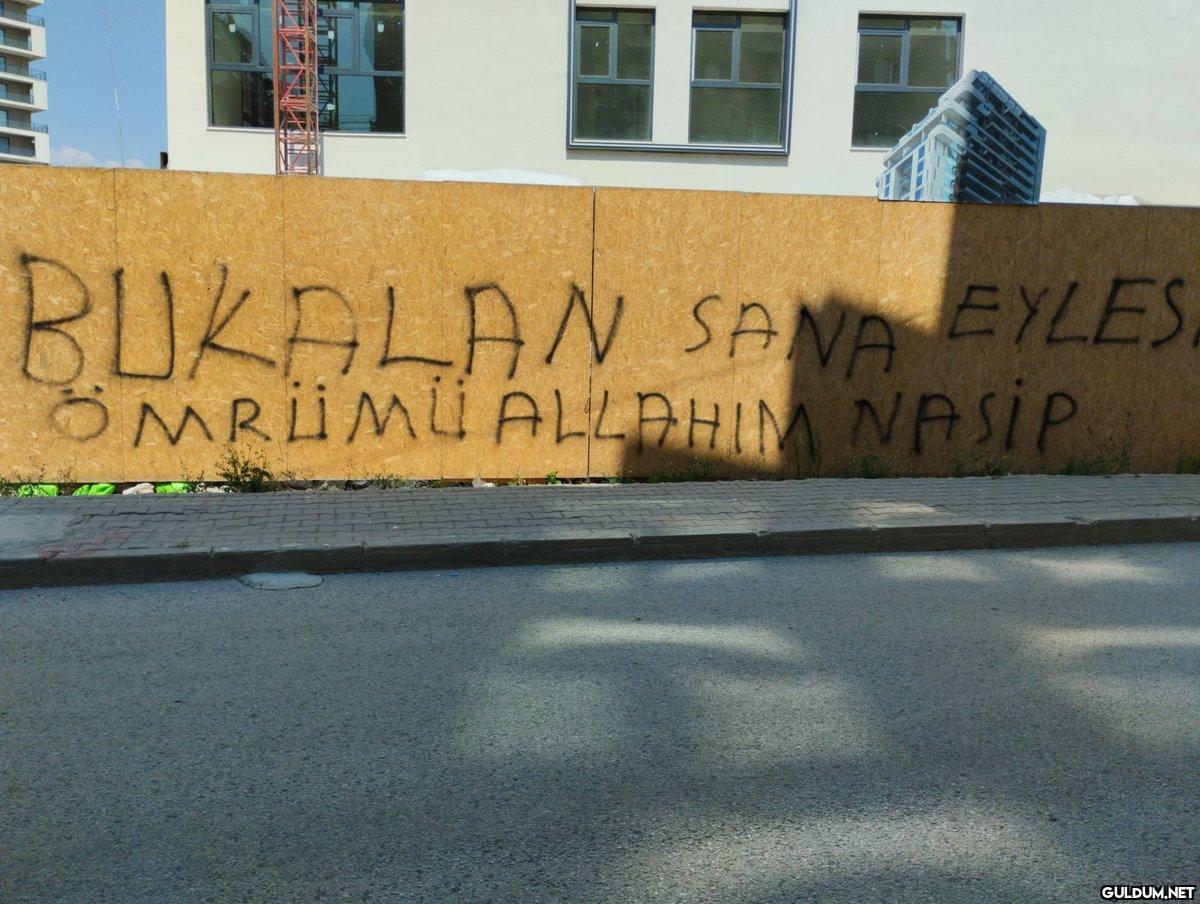 BU KALAN SANA
ÖMRÜMÜ ALLAHIM NASİP
GULDUM.NET